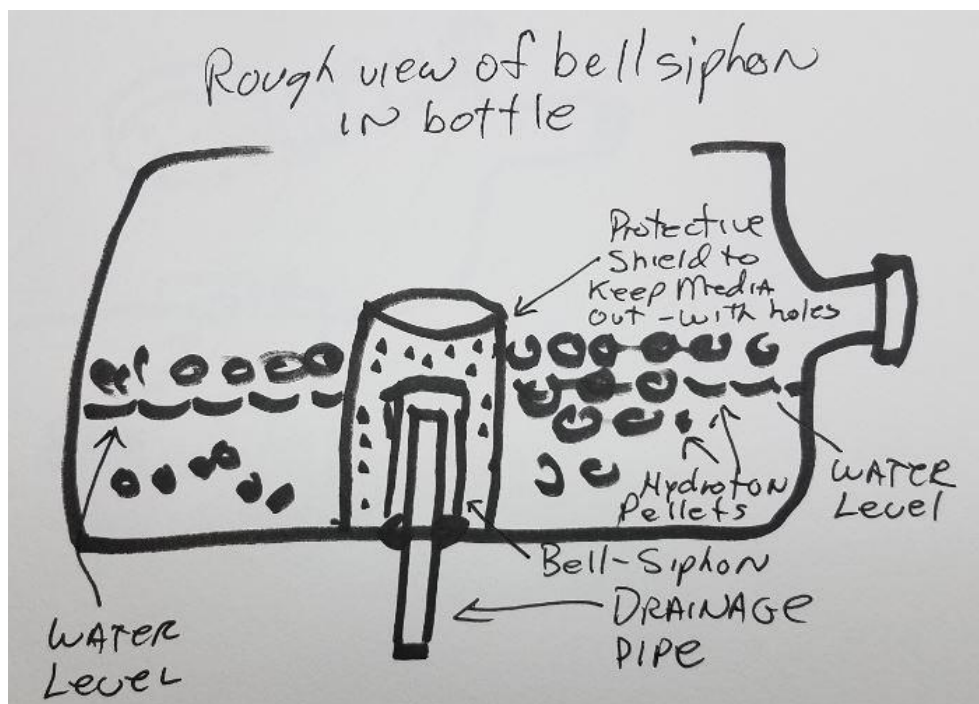 Rough view of bell siphon
IN bottle
Protective
Shield to
Keep Media
Out - with holes
Hydroton
Pellets
WATER
Level
Bell-Siphon
DRAINAGE
PIPE
WATER
Level